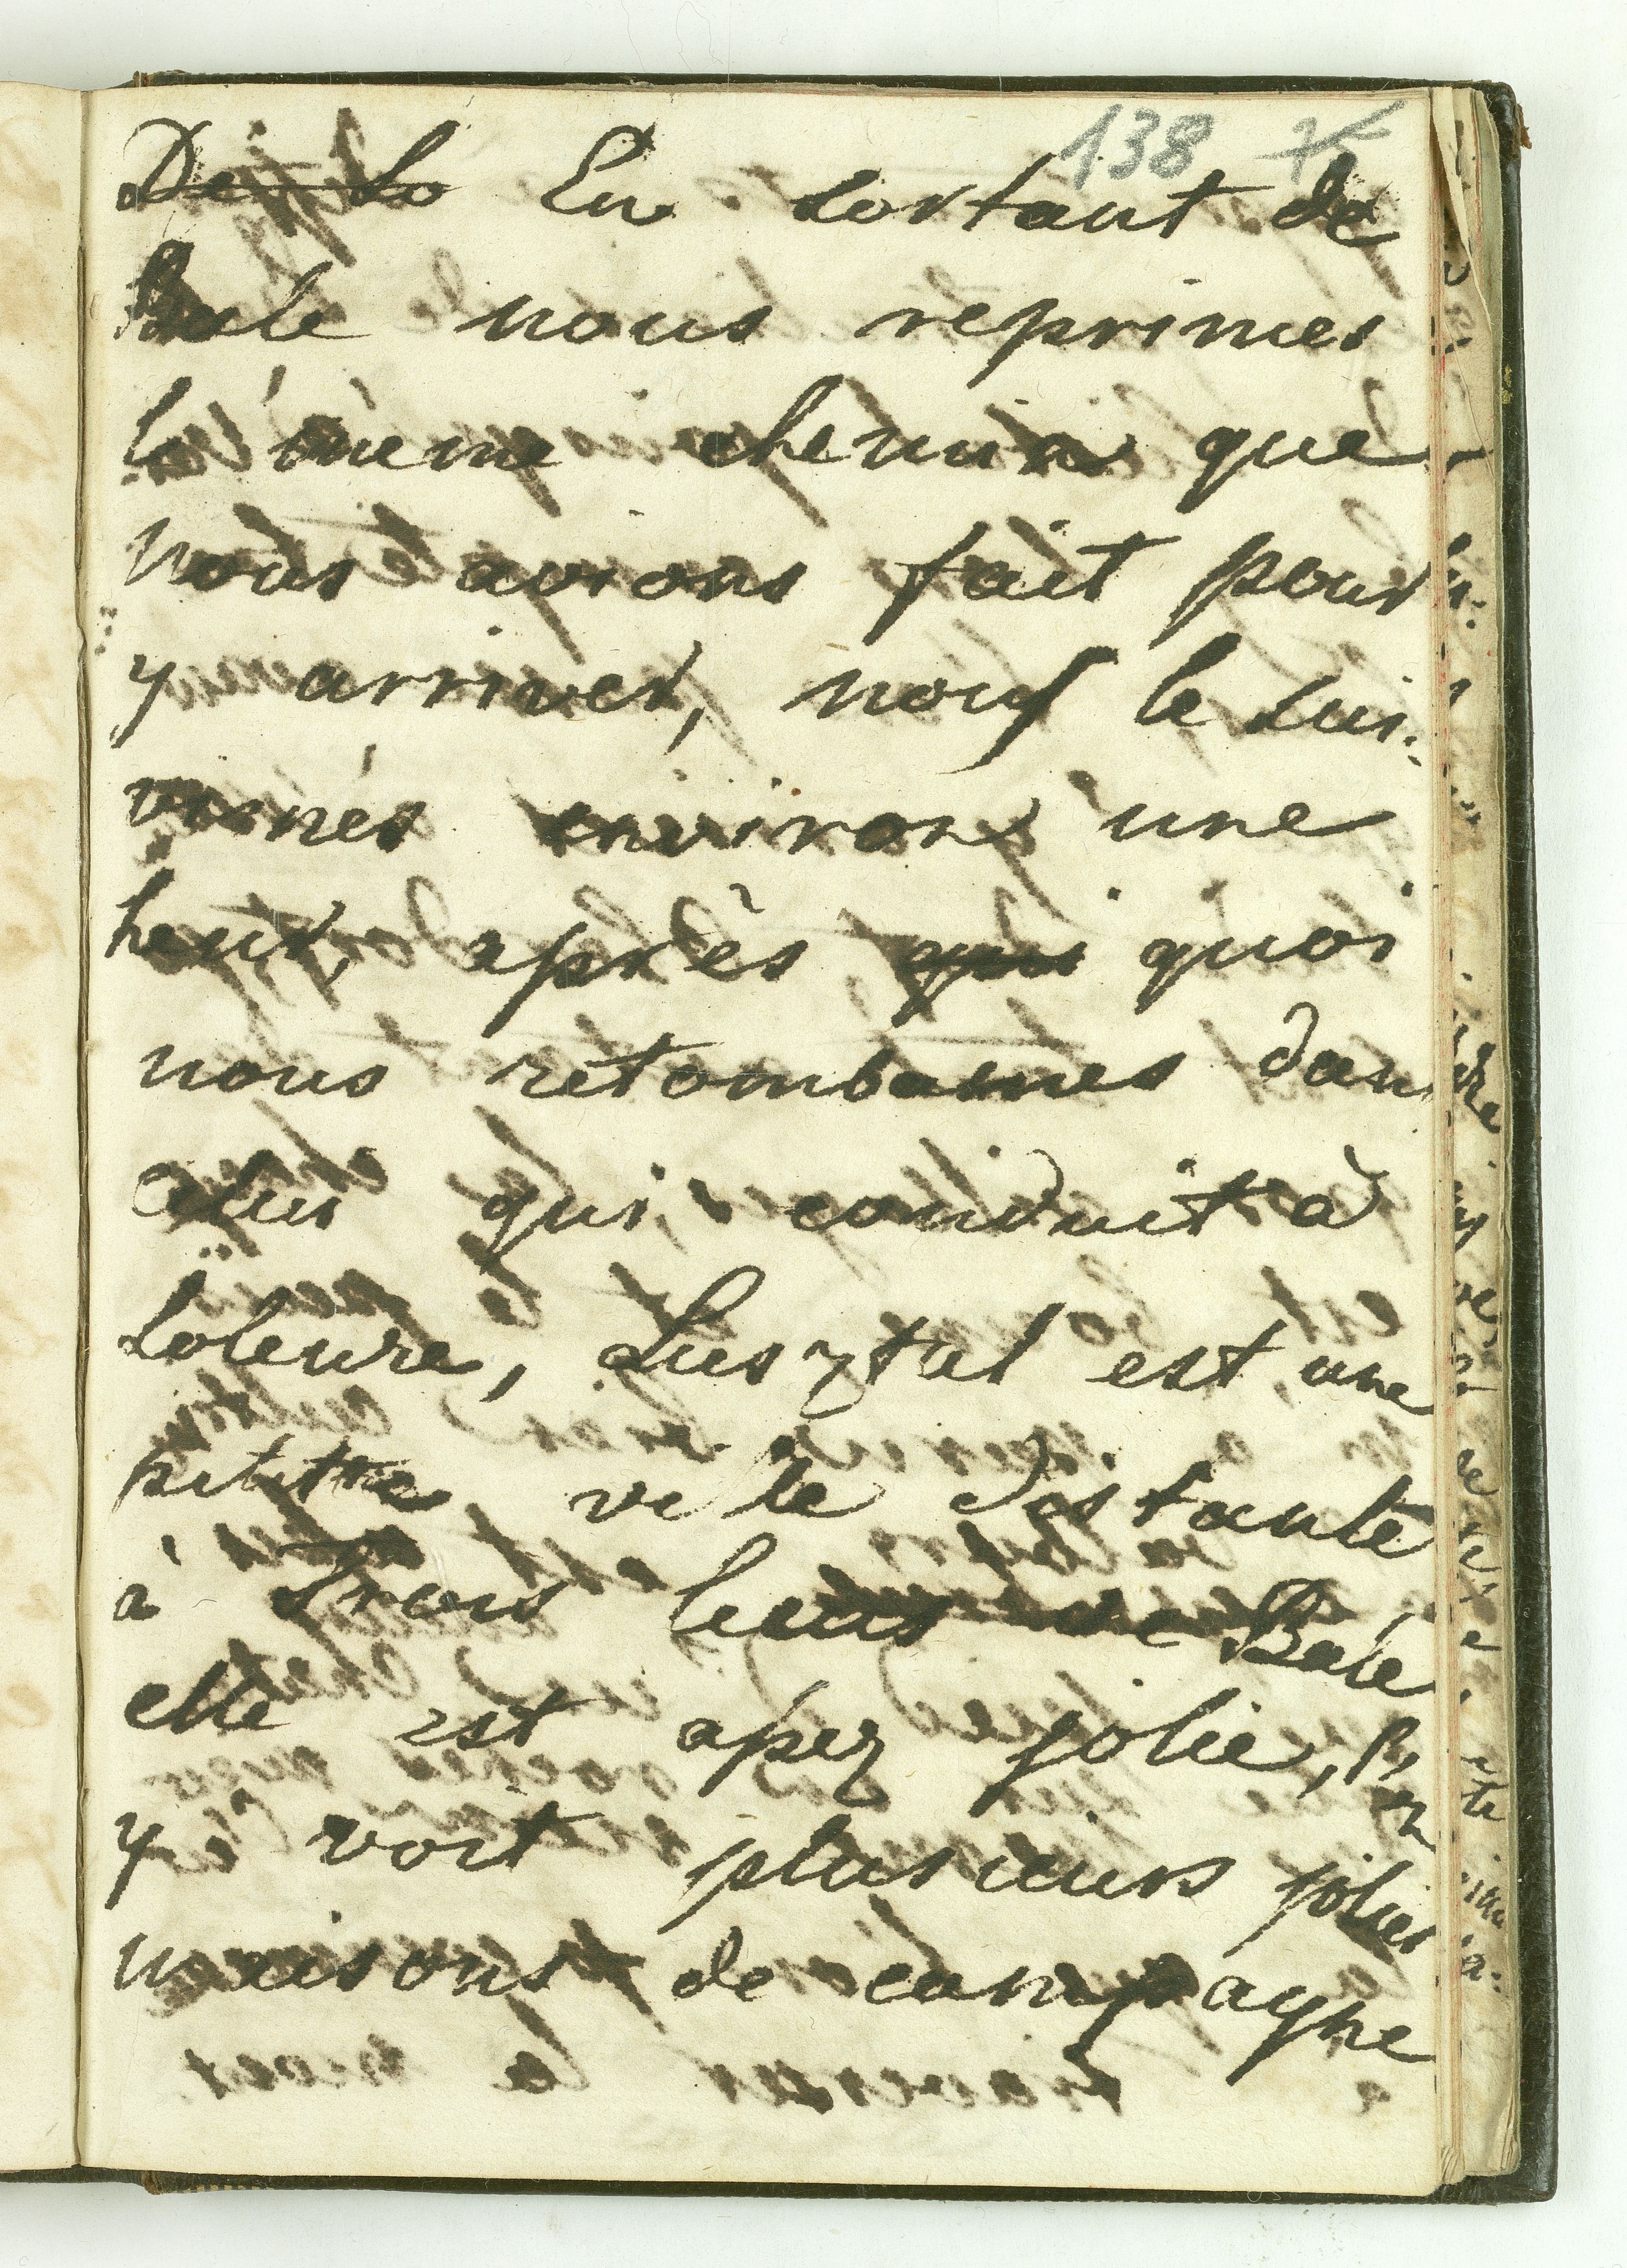 138
De So En sortant de
Bale nous reprimes
le même chemin que
nous avions fait pour
y arriver, nous le sui-
vimes environ une
heur, après qui quoi
nous retombames dans
celui qui conduit à
Soleure, Lusztal est une
petitte ville distante
à trois lieus de Bale
elle est assez jolie, on
y voit plusieurs jolies
maisons de campagne